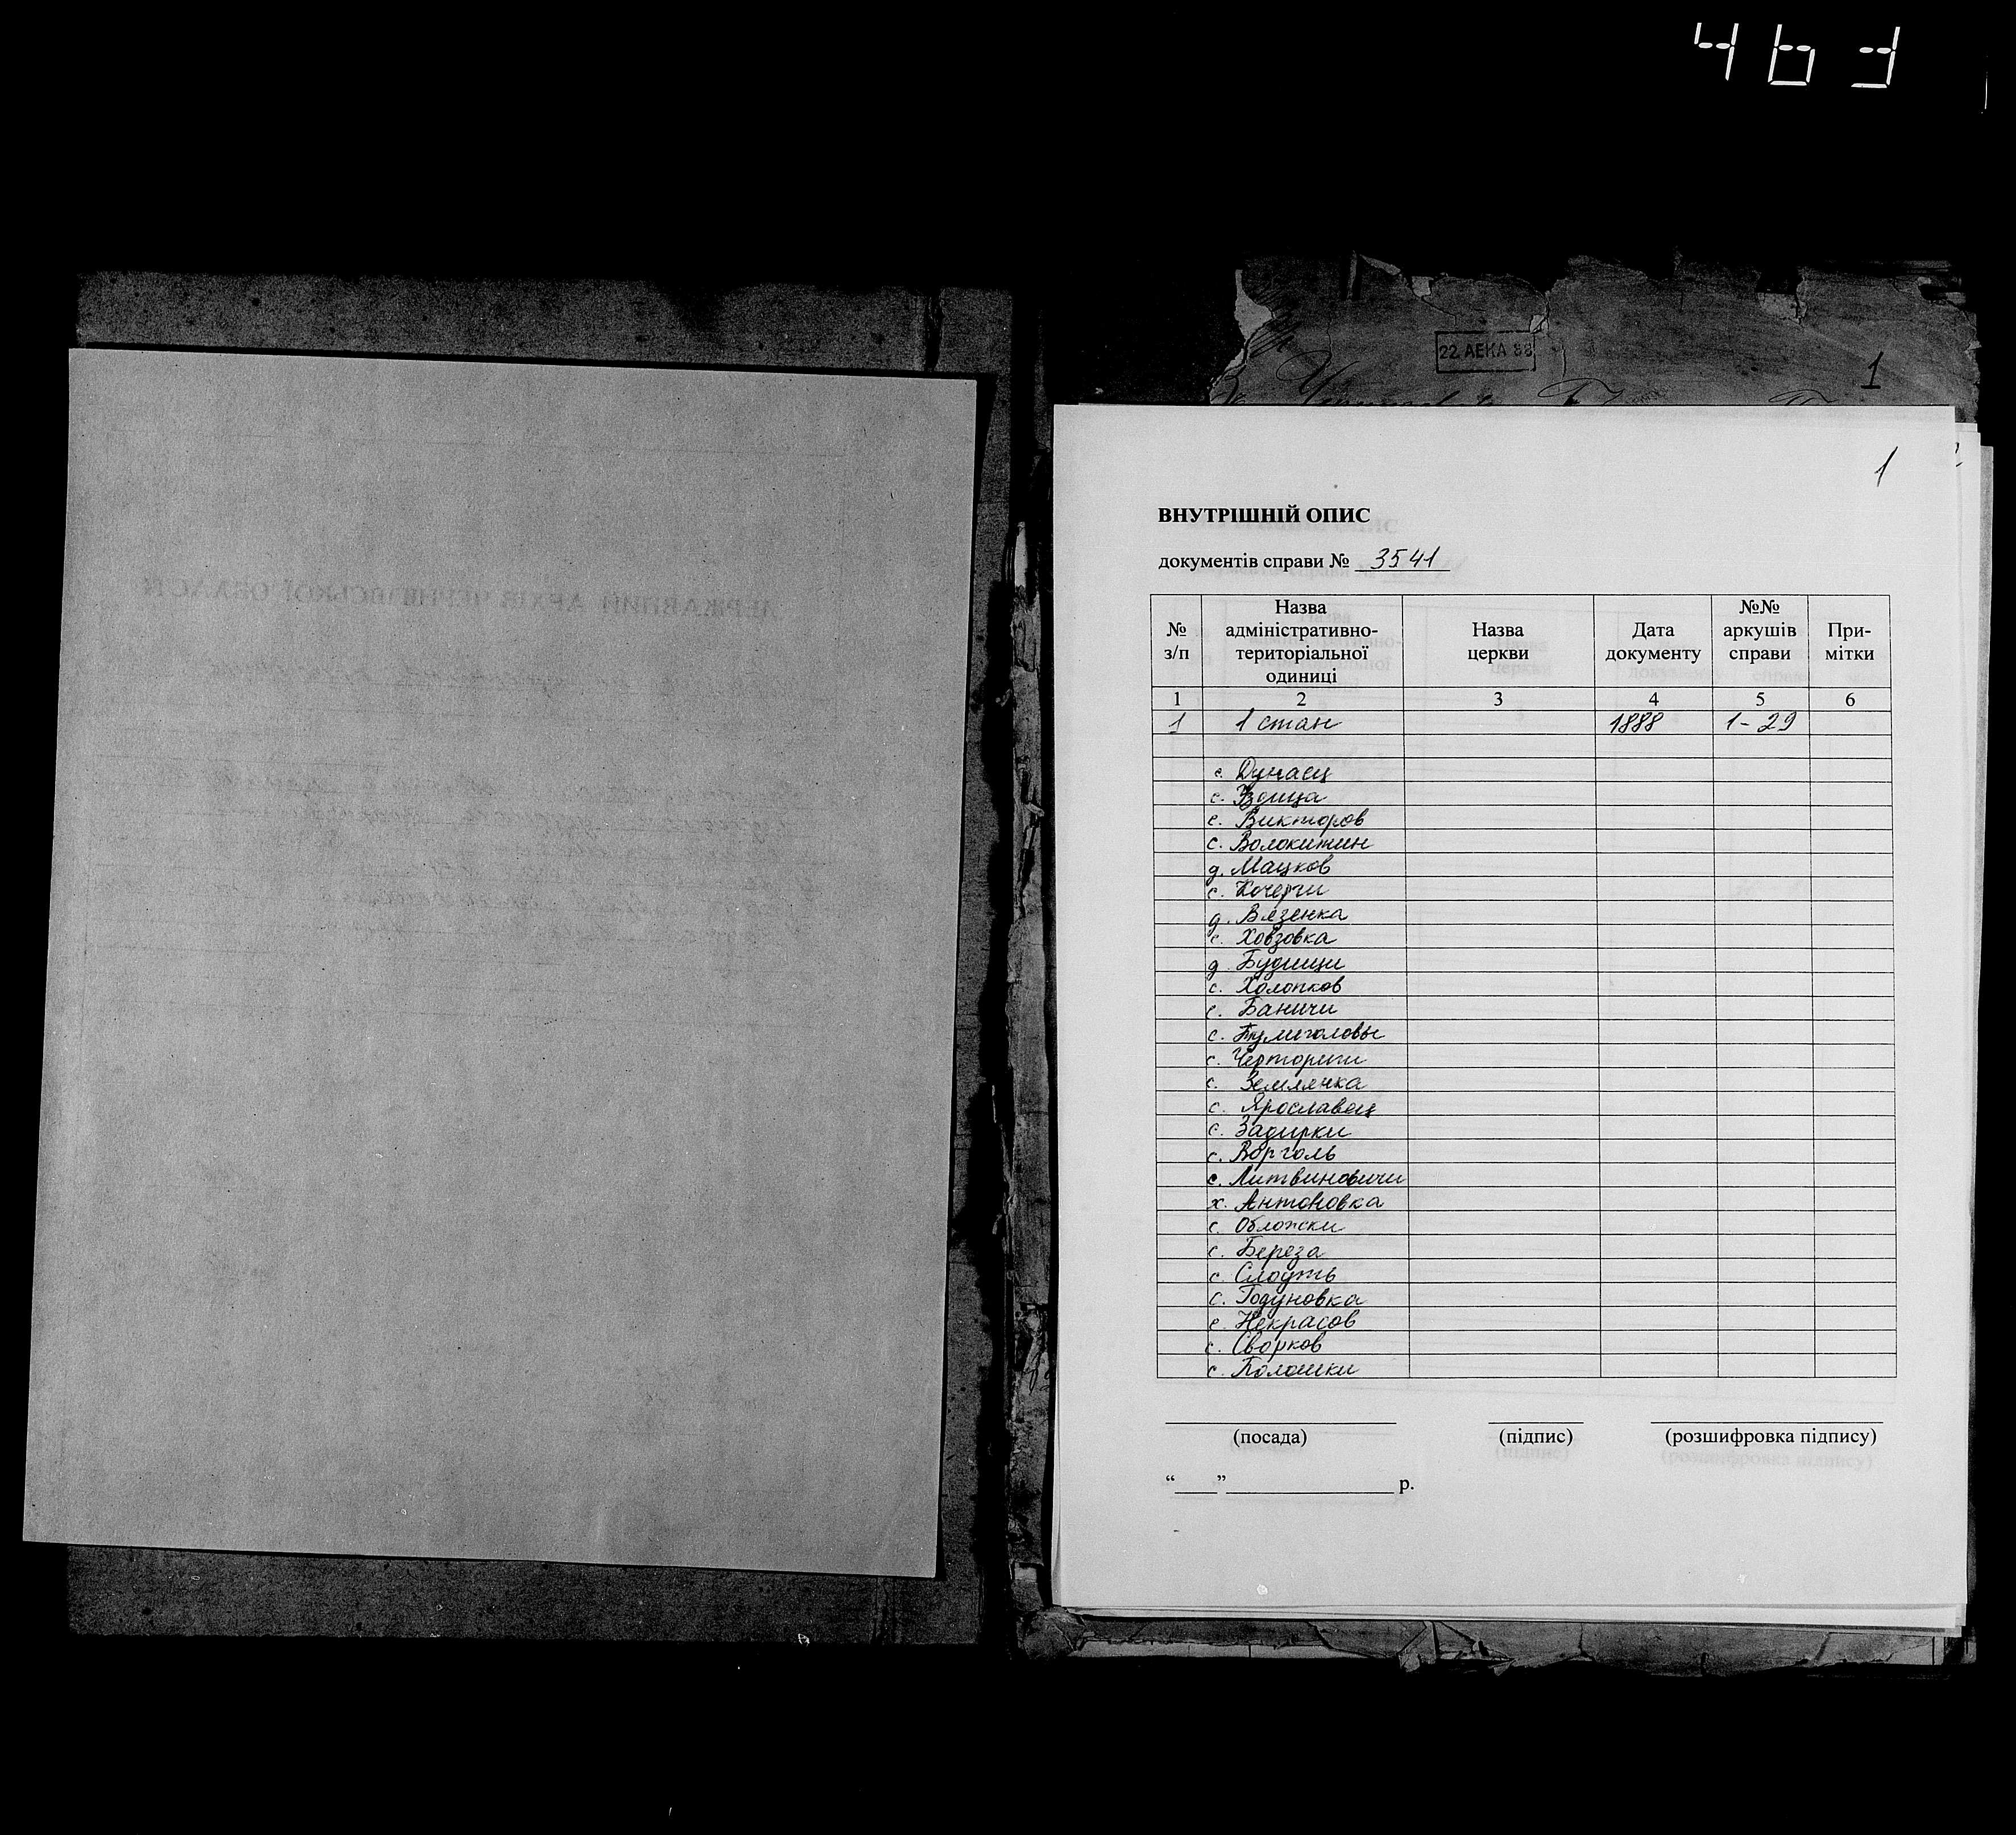 463
22 ДЕКА 88
1
1
ВНУТРІШНІЙ ОПИС
документів справи № 3541
№ з/п | Назва адміністративно-територіальної одиниці | Назва церкви | Дата документу | №№ аркушів справи | При-мітки
1 2 3 4 5 6
1 1 стан 1888 1-29
с. Дунаец
с. Уздица
с. Викторов
с. Волокитин
д. Мацков
с. Кочерги
д. Вязенка
с. Ховзовка
д. Будищи
с. Холопков
с. Баничи
с. Тулиголовы
с. Черториги
с. Землянка
с. Ярославец
с. Задирки
с. Ворголь
с. Литвиновичи
х. Антоновка
с. Обложки
с. Береза
с. Слоуть
с. Годуновка
с. Некрасов
с. Сварков
с. Полошки
(посада) (підпис) (розшифровка підпису)
“____”________________ р.
ДЕРЖАВНИЙ АРХІВ ЧЕРНІГІВСЬКОЇ ОБЛАСТІ